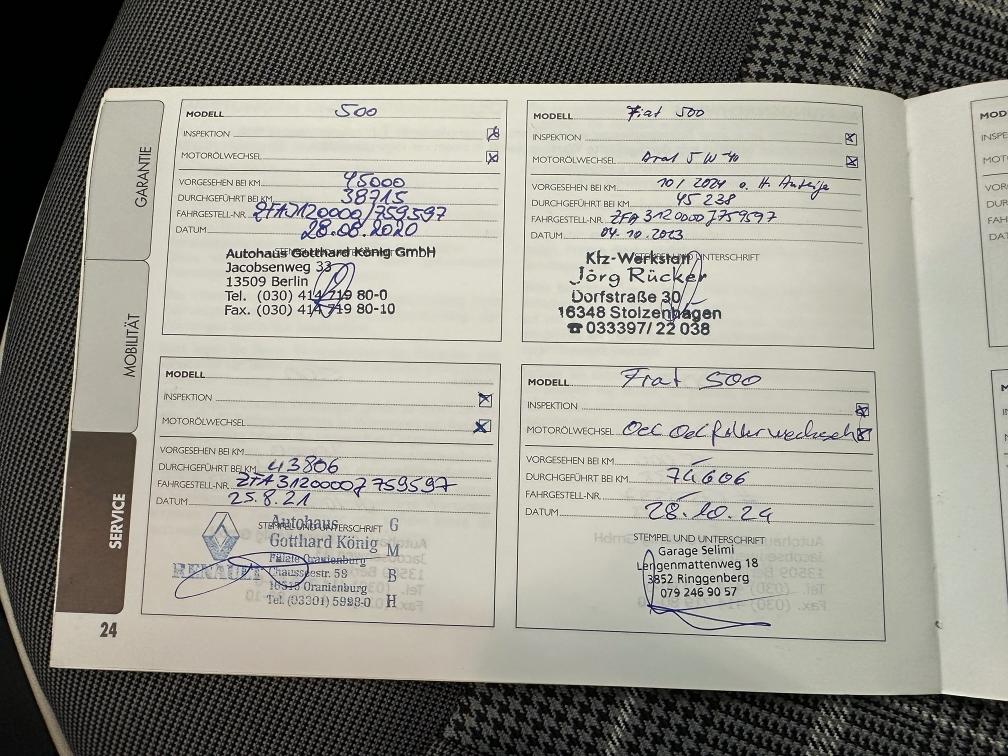 GARANTIE
MOBILITÄT
SERVICE
24
MODELL 500
INSPEKTION
MOTORÖLWECHSEL
VORGESEHEN BEI KM 45000
DURCHGEFÜHRT BEI KM 38715
FAHRGESTELL-NR. ZFA3120000J759597
DATUM 28.08.2020
STEMPEL UND UNTERSCHRIFT
Autohaus Gotthard König GmbH
Jacobsenweg 33
13509 Berlin
Tel. (030) 414 719 80-0
Fax. (030) 414 719 80-10
MODELL
INSPEKTION
MOTORÖLWECHSEL
VORGESEHEN BEI KM
DURCHGEFÜHRT BEI KM 43806
FAHRGESTELL-NR. ZFA3120000J759597
DATUM 25.8.21
STEMPEL UND UNTERSCHRIFT
Autohaus G
Gotthard König M
Filiale Oranienburg
RENAULT Chausseestr. 58 B
16515 Oranienburg
Tel. (03301) 5983-0 H
MODELL Fiat 500
INSPEKTION
MOTORÖLWECHSEL Aral 5W-40
VORGESEHEN BEI KM 10/2024 o. H. Anzeige
DURCHGEFÜHRT BEI KM 45 238
FAHRGESTELL-NR. ZFA3120000J759597
DATUM 04.10.2023
STEMPEL UND UNTERSCHRIFT
Kfz-Werkstatt
Jörg Rücker
Dorfstraße 30
16348 Stolzenhagen
☎ 033397/22 038
MODELL Fiat 500
INSPEKTION
MOTORÖLWECHSEL Oel Oelfilter
VORGESEHEN BEI KM
DURCHGEFÜHRT BEI KM 74606
FAHRGESTELL-NR.
DATUM 28.10.24
STEMPEL UND UNTERSCHRIFT
Garage Selimi
Lengenmattenweg 18
3852 Ringgenberg
079 246 90 57